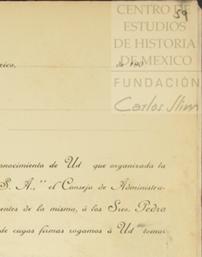 CENTRO DE
ESTUDIOS
DE HISTORIA
DE MEXICO
FUNDACIÓN
Carlos Slim
59
xico,
de 190
onocimiento de Ud que organizada la
S. A.," el Consejo de Administra-
entes de la misma, á los Sres. Pedro
de cuyas firmas rogamos á Ud tomar